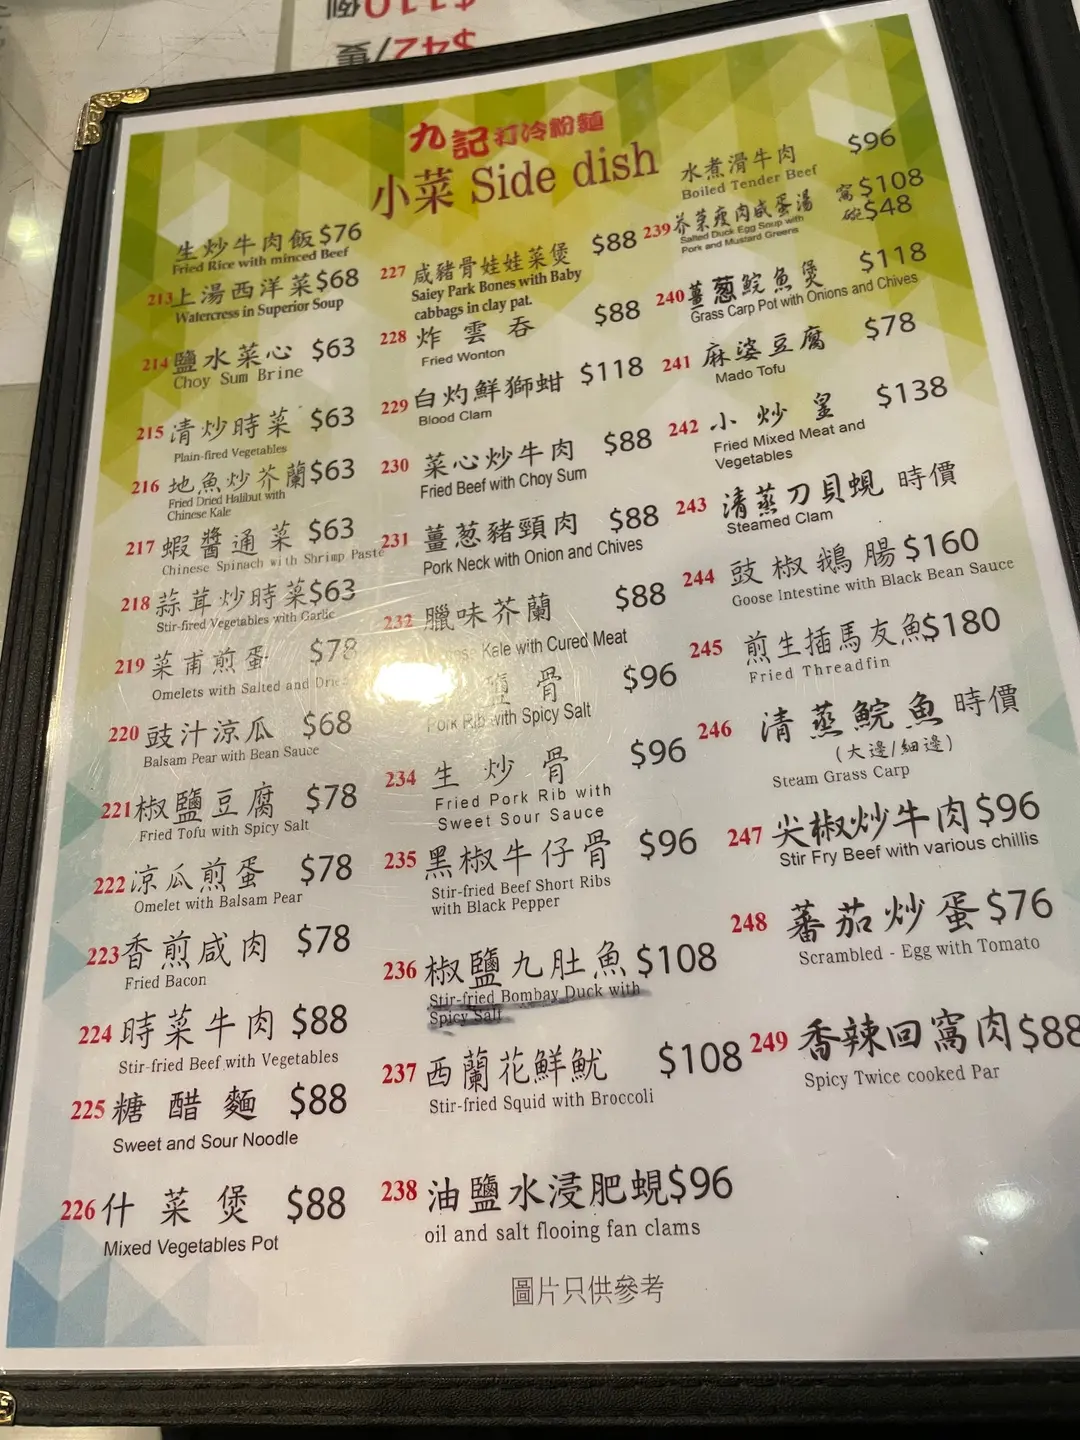 $110例
$42/隻
九記打冷粉麵
小菜 Side dish
生炒牛肉飯 $76
Fried Rice with minced Beef
213 上湯西洋菜 $68
Watercress in Superior Soup
214 鹽水菜心 $63
Choy Sum Brine
215 清炒時菜 $63
Plain-fired Vegetables
216 地魚炒芥蘭 $63
Fried Dried Halibut with
Chinese Kale
217 蝦醬通菜 $63
Chinese Spinach with Shrimp Paste
218 蒜茸炒時菜 $63
Stir-fired Vegetables with Garlic
219 菜甫煎蛋 $78
Omelets with Salted and
220 豉汁涼瓜 $68
Balsam Pear with Bean Sauce
221 椒鹽豆腐 $78
Fried Tofu with Spicy Salt
222 涼瓜煎蛋 $78
Omelet with Balsam Pear
223 香煎咸肉 $78
Fried Bacon
224 時菜牛肉 $88
Stir-fried Beef with Vegetables
225 糖醋麵 $88
Sweet and Sour Noodle
226 什菜煲 $88
Mixed Vegetables Pot
227 咸豬骨娃娃菜煲 $88
Saiey Park Bones with Baby
cabbags in clay pat.
228 炸雲吞 $88
Fried Wonton
229 白灼鮮獅蚶 $118
Blood Clam
230 菜心炒牛肉 $88
Fried Beef with Choy Sum
231 薑葱豬頸肉 $88
Pork Neck with Onion and Chives
232 臘味芥蘭 $88
Kale with Cured Meat
鹽骨 $96
Pork Rib with Spicy Salt
234 生炒骨 $96
Fried Pork Rib with
Sweet Sour Sauce
235 黑椒牛仔骨 $96
Stir-fried Beef Short Ribs
with Black Pepper
236 椒鹽九肚魚 $108
Stir-fried Bombay Duck with
Spicy Salt
237 西蘭花鮮魷 $108
Stir-fried Squid with Broccoli
238 油鹽水浸肥蜆 $96
oil and salt flooing fan clams
水煮滑牛肉 $96
Boiled Tender Beef
239 芥菜瘦肉咸蛋湯 窩 $108
碗 $48
Salted Duck Egg Soup with
Pork and Mustard Greens
240 薑葱鯇魚煲 $118
Grass Carp Pot with Onions and Chives
241 麻婆豆腐 $78
Mado Tofu
242 小炒皇 $138
Fried Mixed Meat and
Vegetables
243 清蒸刀貝蜆 時價
Steamed Clam
244 豉椒鵝腸 $160
Goose Intestine with Black Bean Sauce
245 煎生插馬友魚 $180
Fried Threadfin
246 清蒸鯇魚 時價
(大邊/細邊)
Steam Grass Carp
247 尖椒炒牛肉 $96
Stir Fry Beef with various chillis
248 蕃茄炒蛋 $76
Scrambled - Egg with Tomato
249 香辣回窩肉 $88
Spicy Twice cooked Par
圖片只供參考